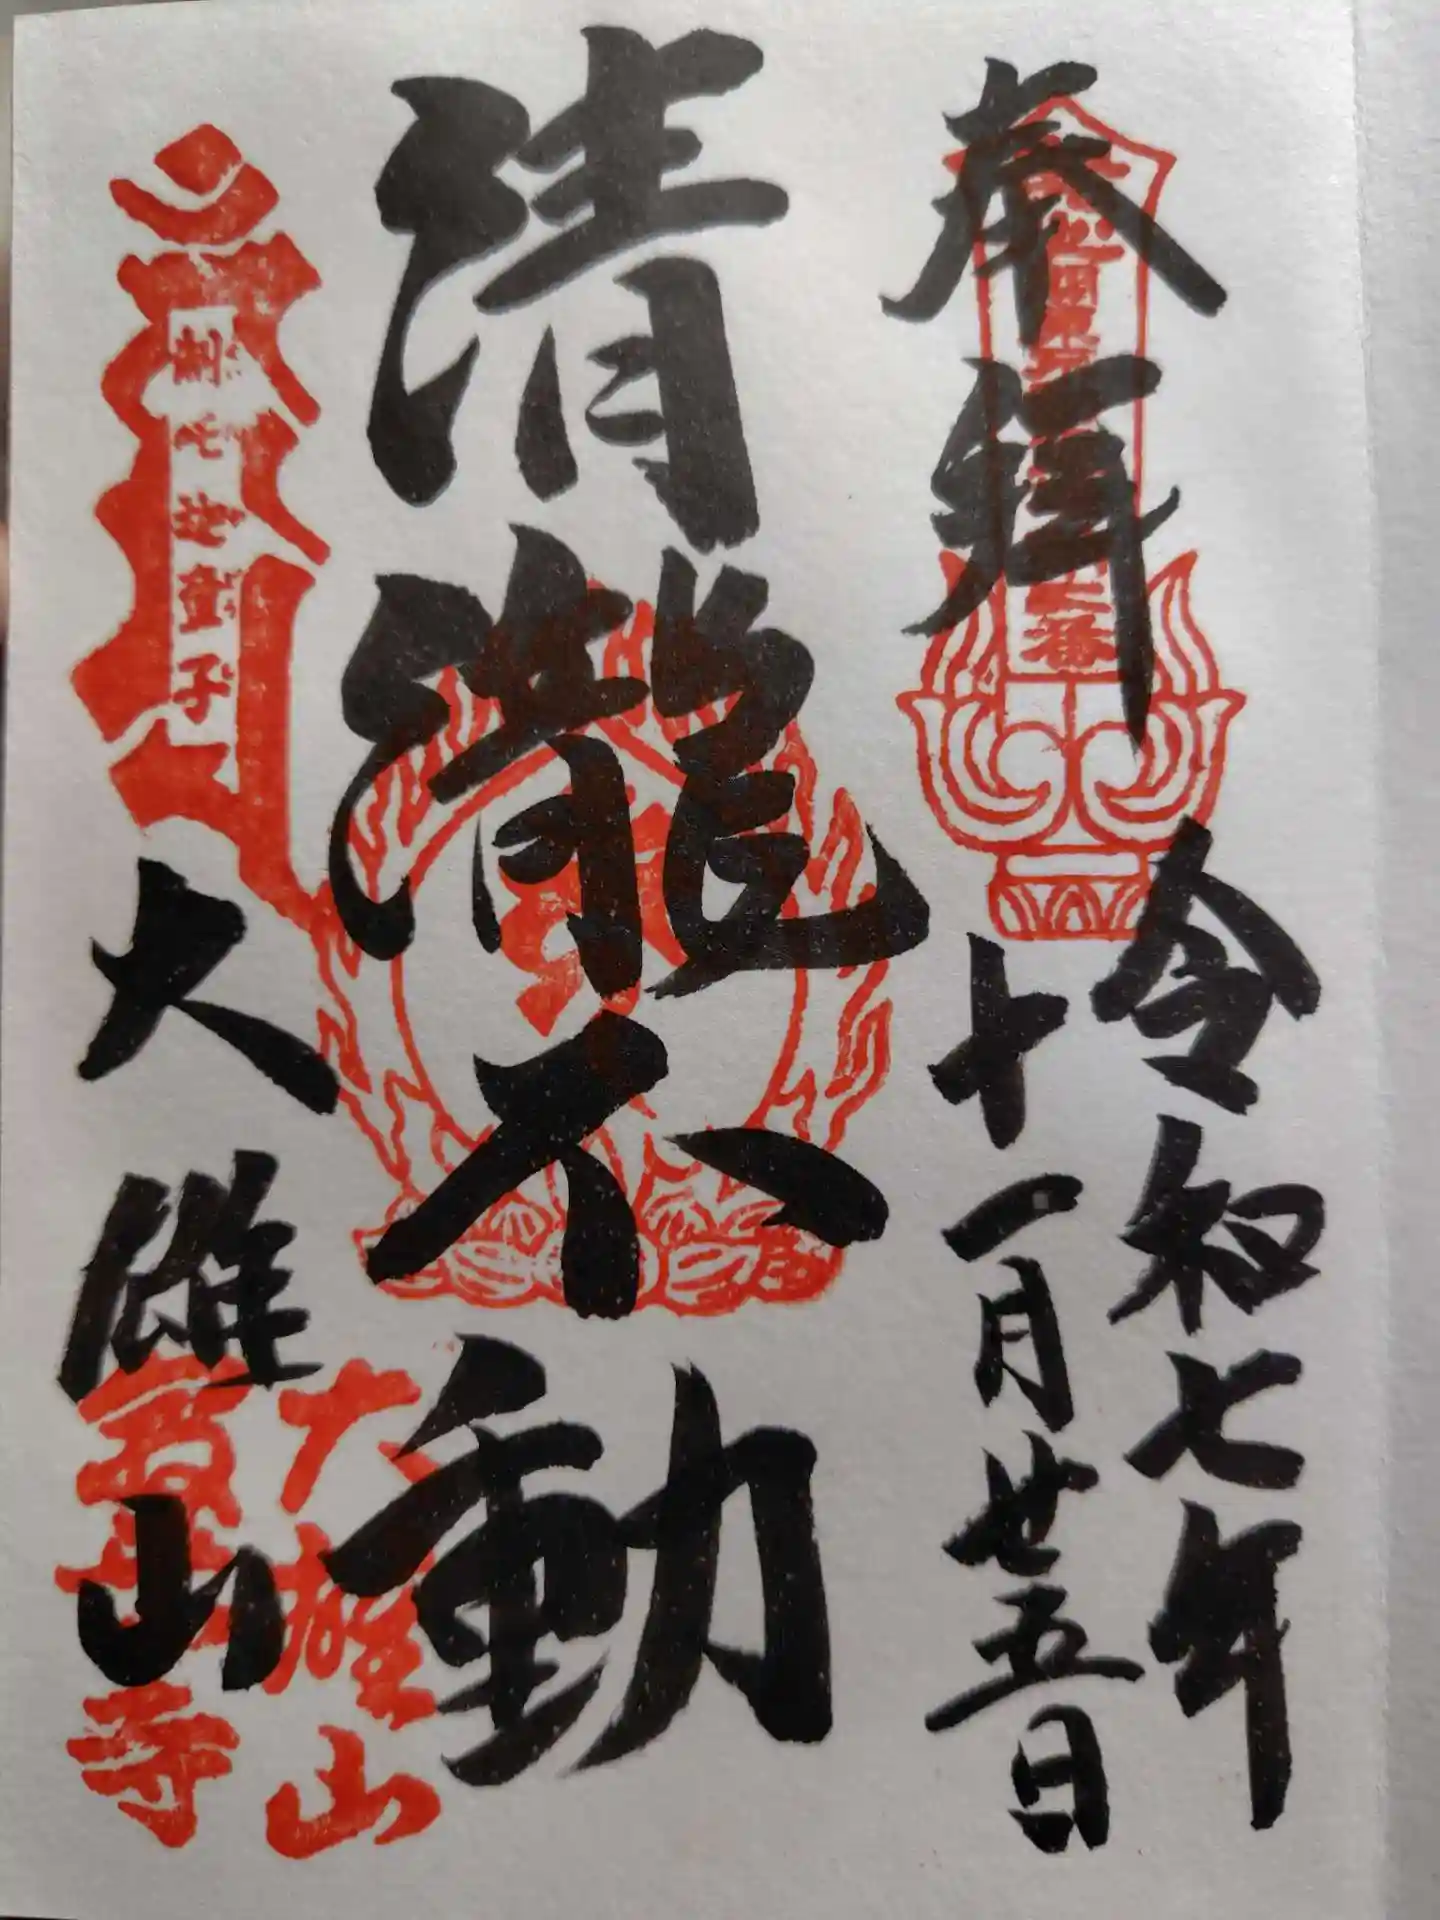 奉拝
令和七年
十一月廿五日
清瀧不動
制吒迦童子
大雄山
大雄山
最乗寺